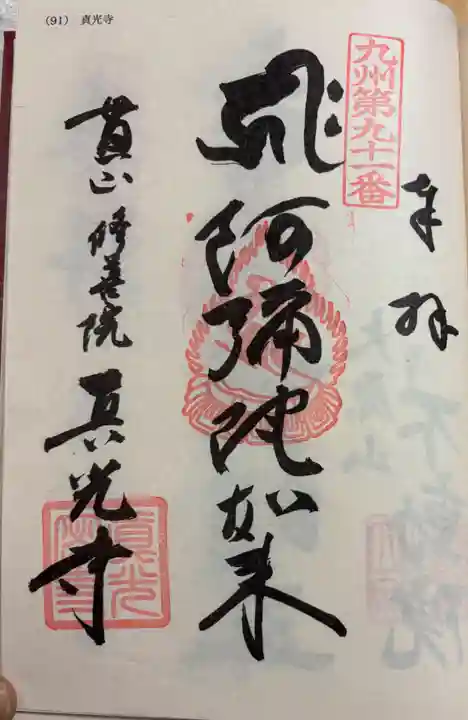 (91) 真光寺
九州第九十一番
奉拝
阿弥陀如来
修善院 真光寺
真光寺